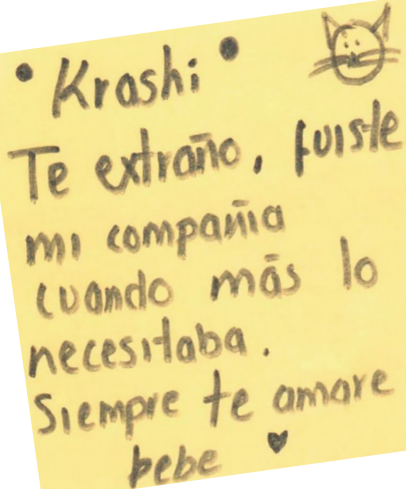 • Krashi •
Te extraño, fuiste
mi compañia
cuando más lo
necesitaba.
Siempre te amare
bebe ♥